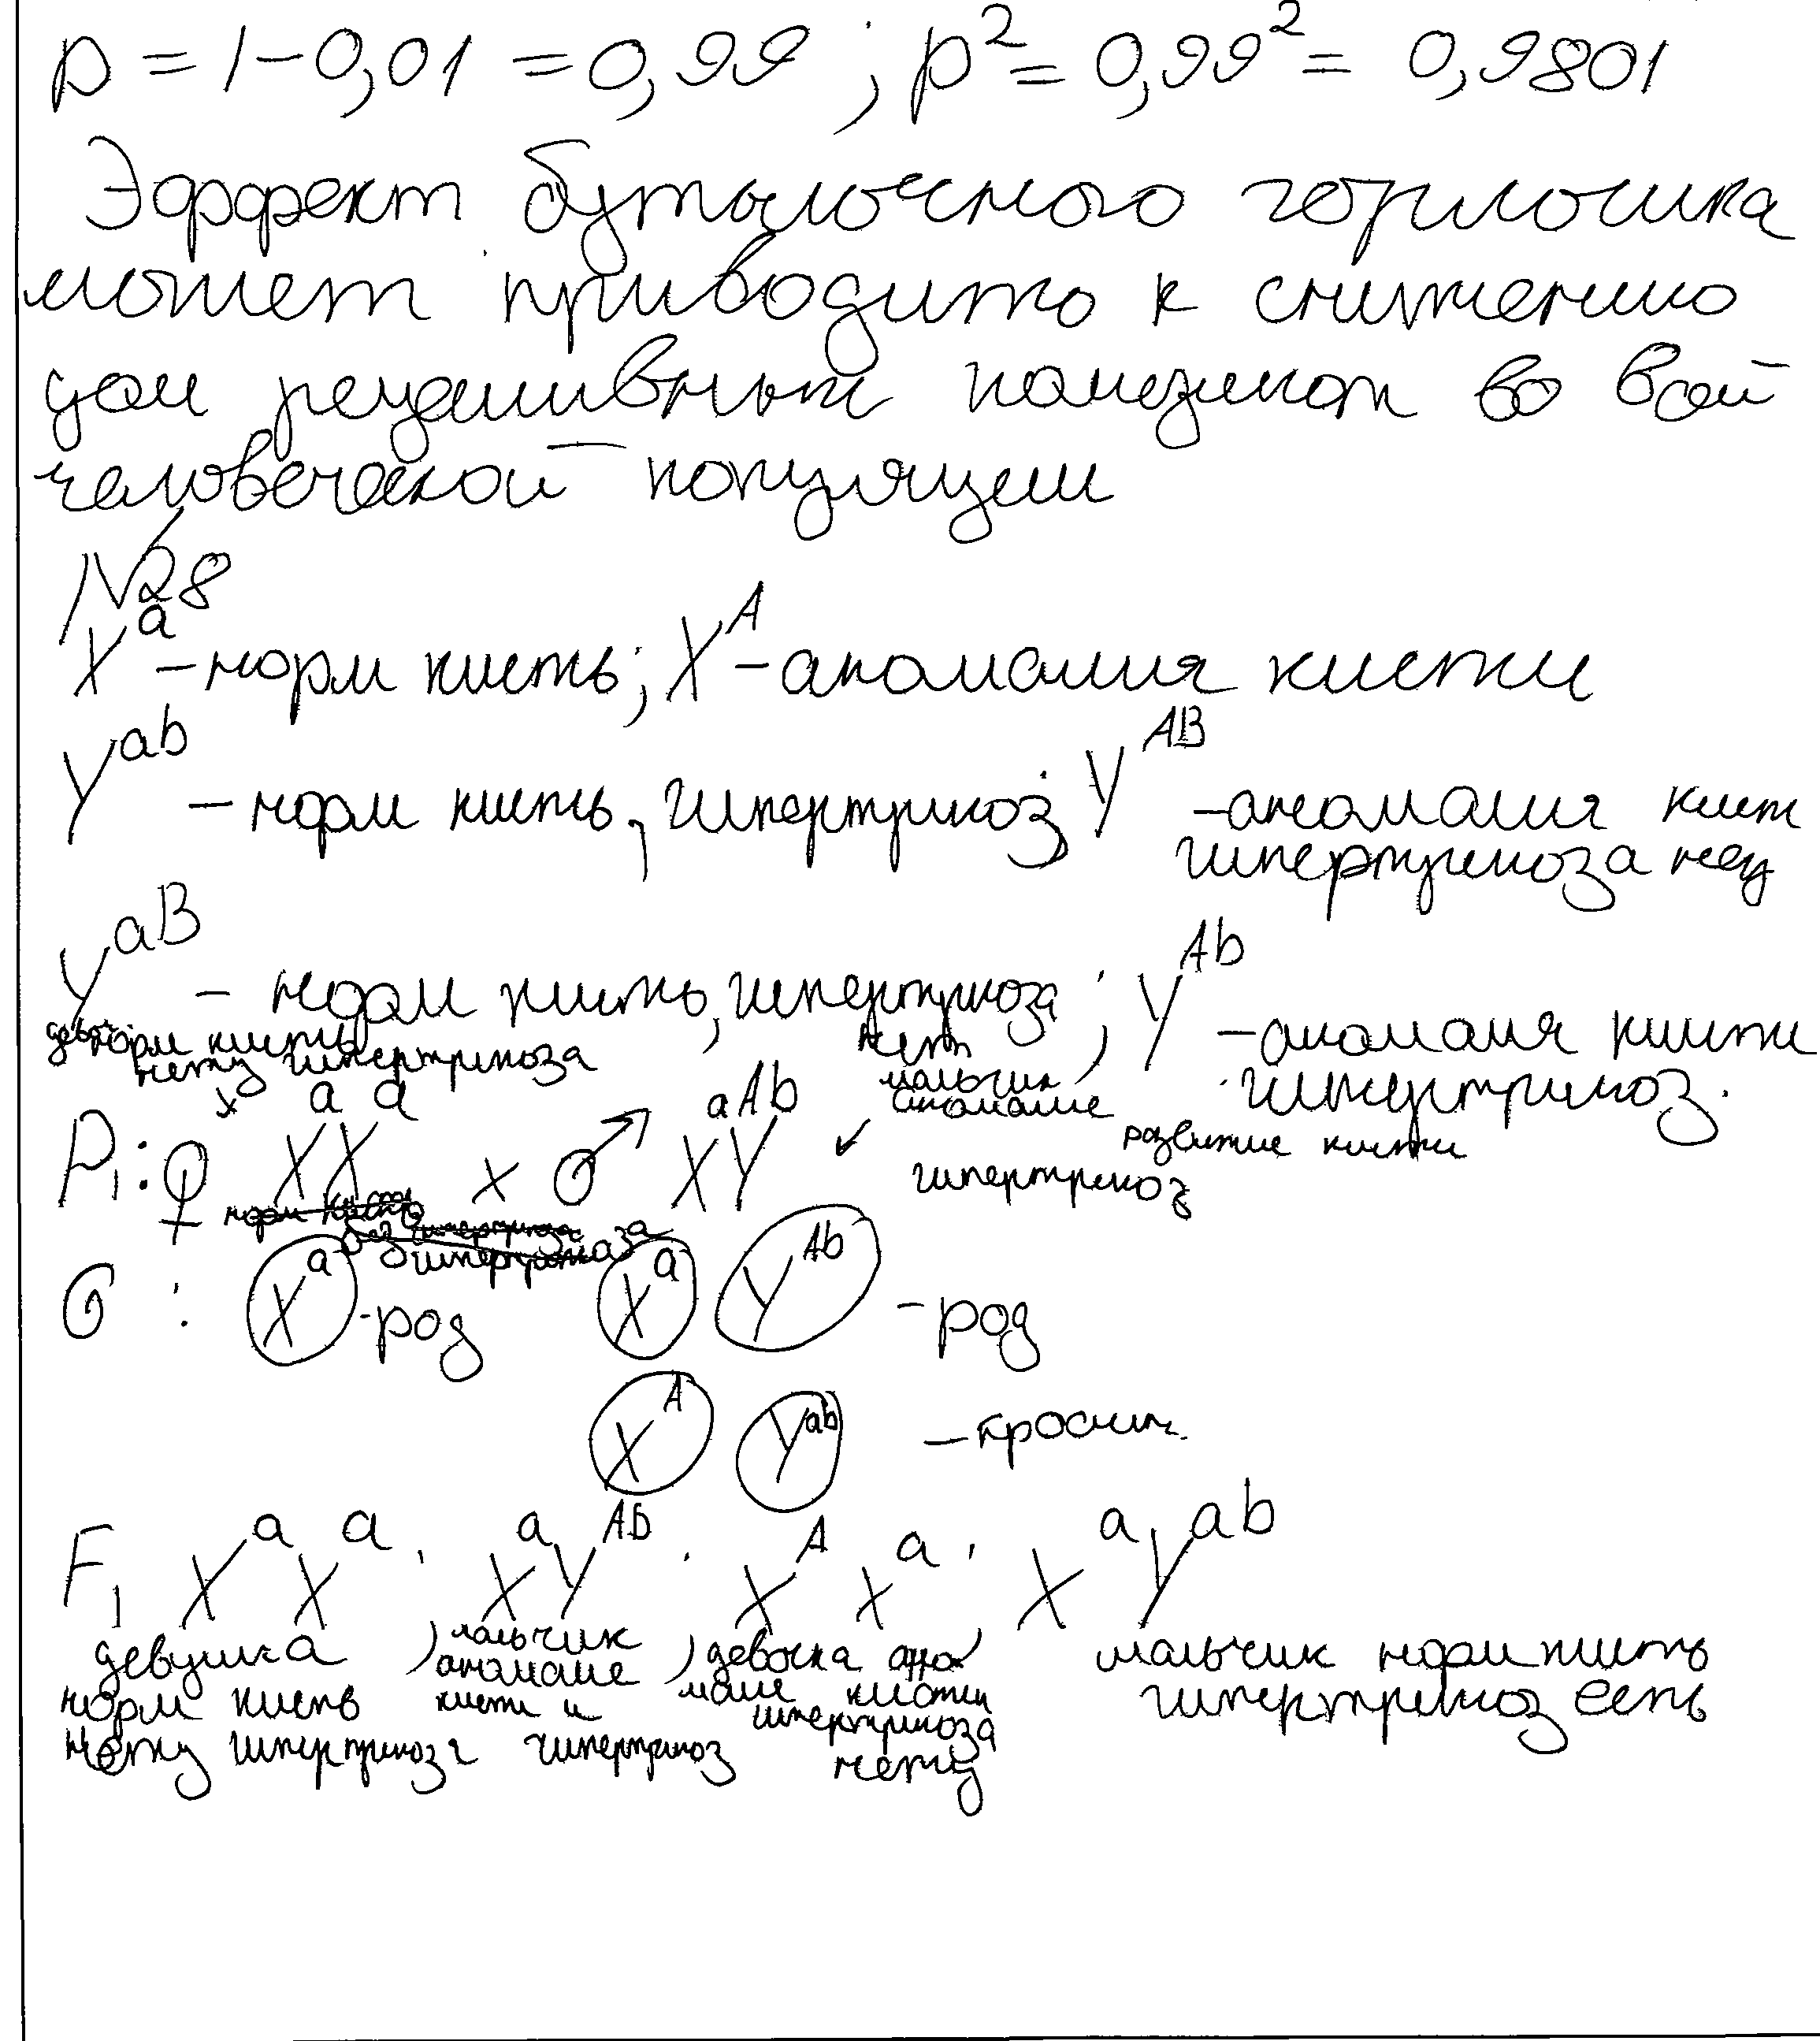 p = 1 - 0,01 = 0,99 ; p² = 0,99² = 0,9801
Эффект бутылочного горлышка
может приводить к снижению
рецессивных во всей
человеческой популяции
№28
Xᵃ - норм кисть; Xᴬ - аномалия кисти
Yᵃᵇ - норм кисть, гипертрихоз; Yᴬᴮ - аномалия кист
гипертрихоза нету
Yᵃᴮ - норм кисть, гипертрихоза нет ; Yᴬᵇ - аномалия кисти
гипертрихоз.
норм кисть
нету гипертрихоза
мальчик
аномалие
развитие кисти
гипертрихоз
P₁: ♀ XᵃXᵃ x ♂ XᵃYᴬᵇ
G : Xᵃ - род Xᵃ Yᴬᵇ - род
Xᴬ Yᵃᵇ - кроссин.
F₁ XᵃXᵃ ; XᵃYᴬᵇ ; XᴬXᵃ ; XᵃYᵃᵇ
девушка
норм кисть
нету гипертрихоза
мальчик
аномалие
кисти и
гипертрихоз
девочка ано
малие кисти
гипертрихоза
нету
мальчик норм кисть
гипертрихоз есть